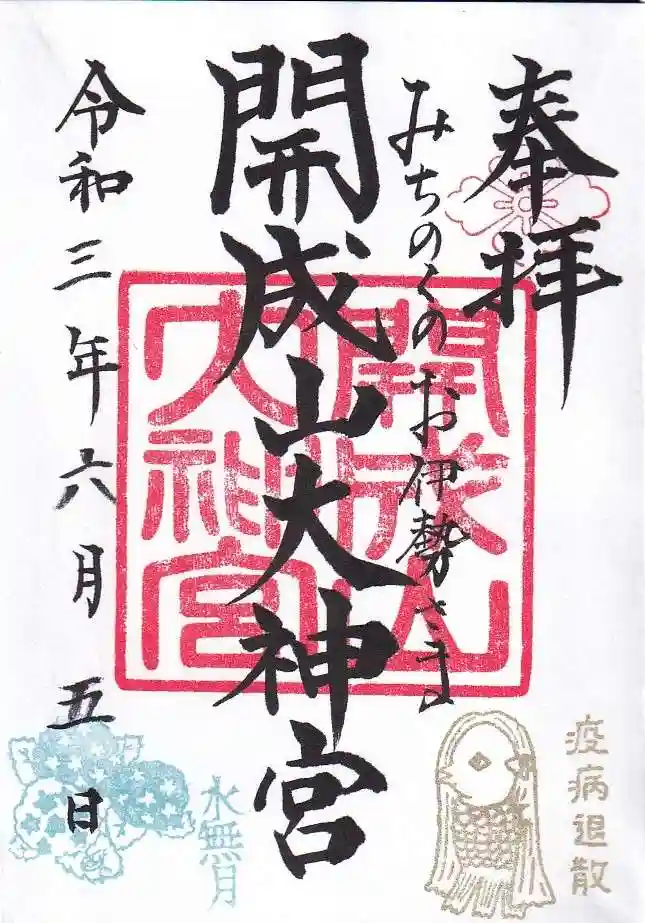 奉拝
みちのくのお伊勢さま
開成山大神宮
開成山
大神宮
令和三年六月五日
水無月
疫病退散